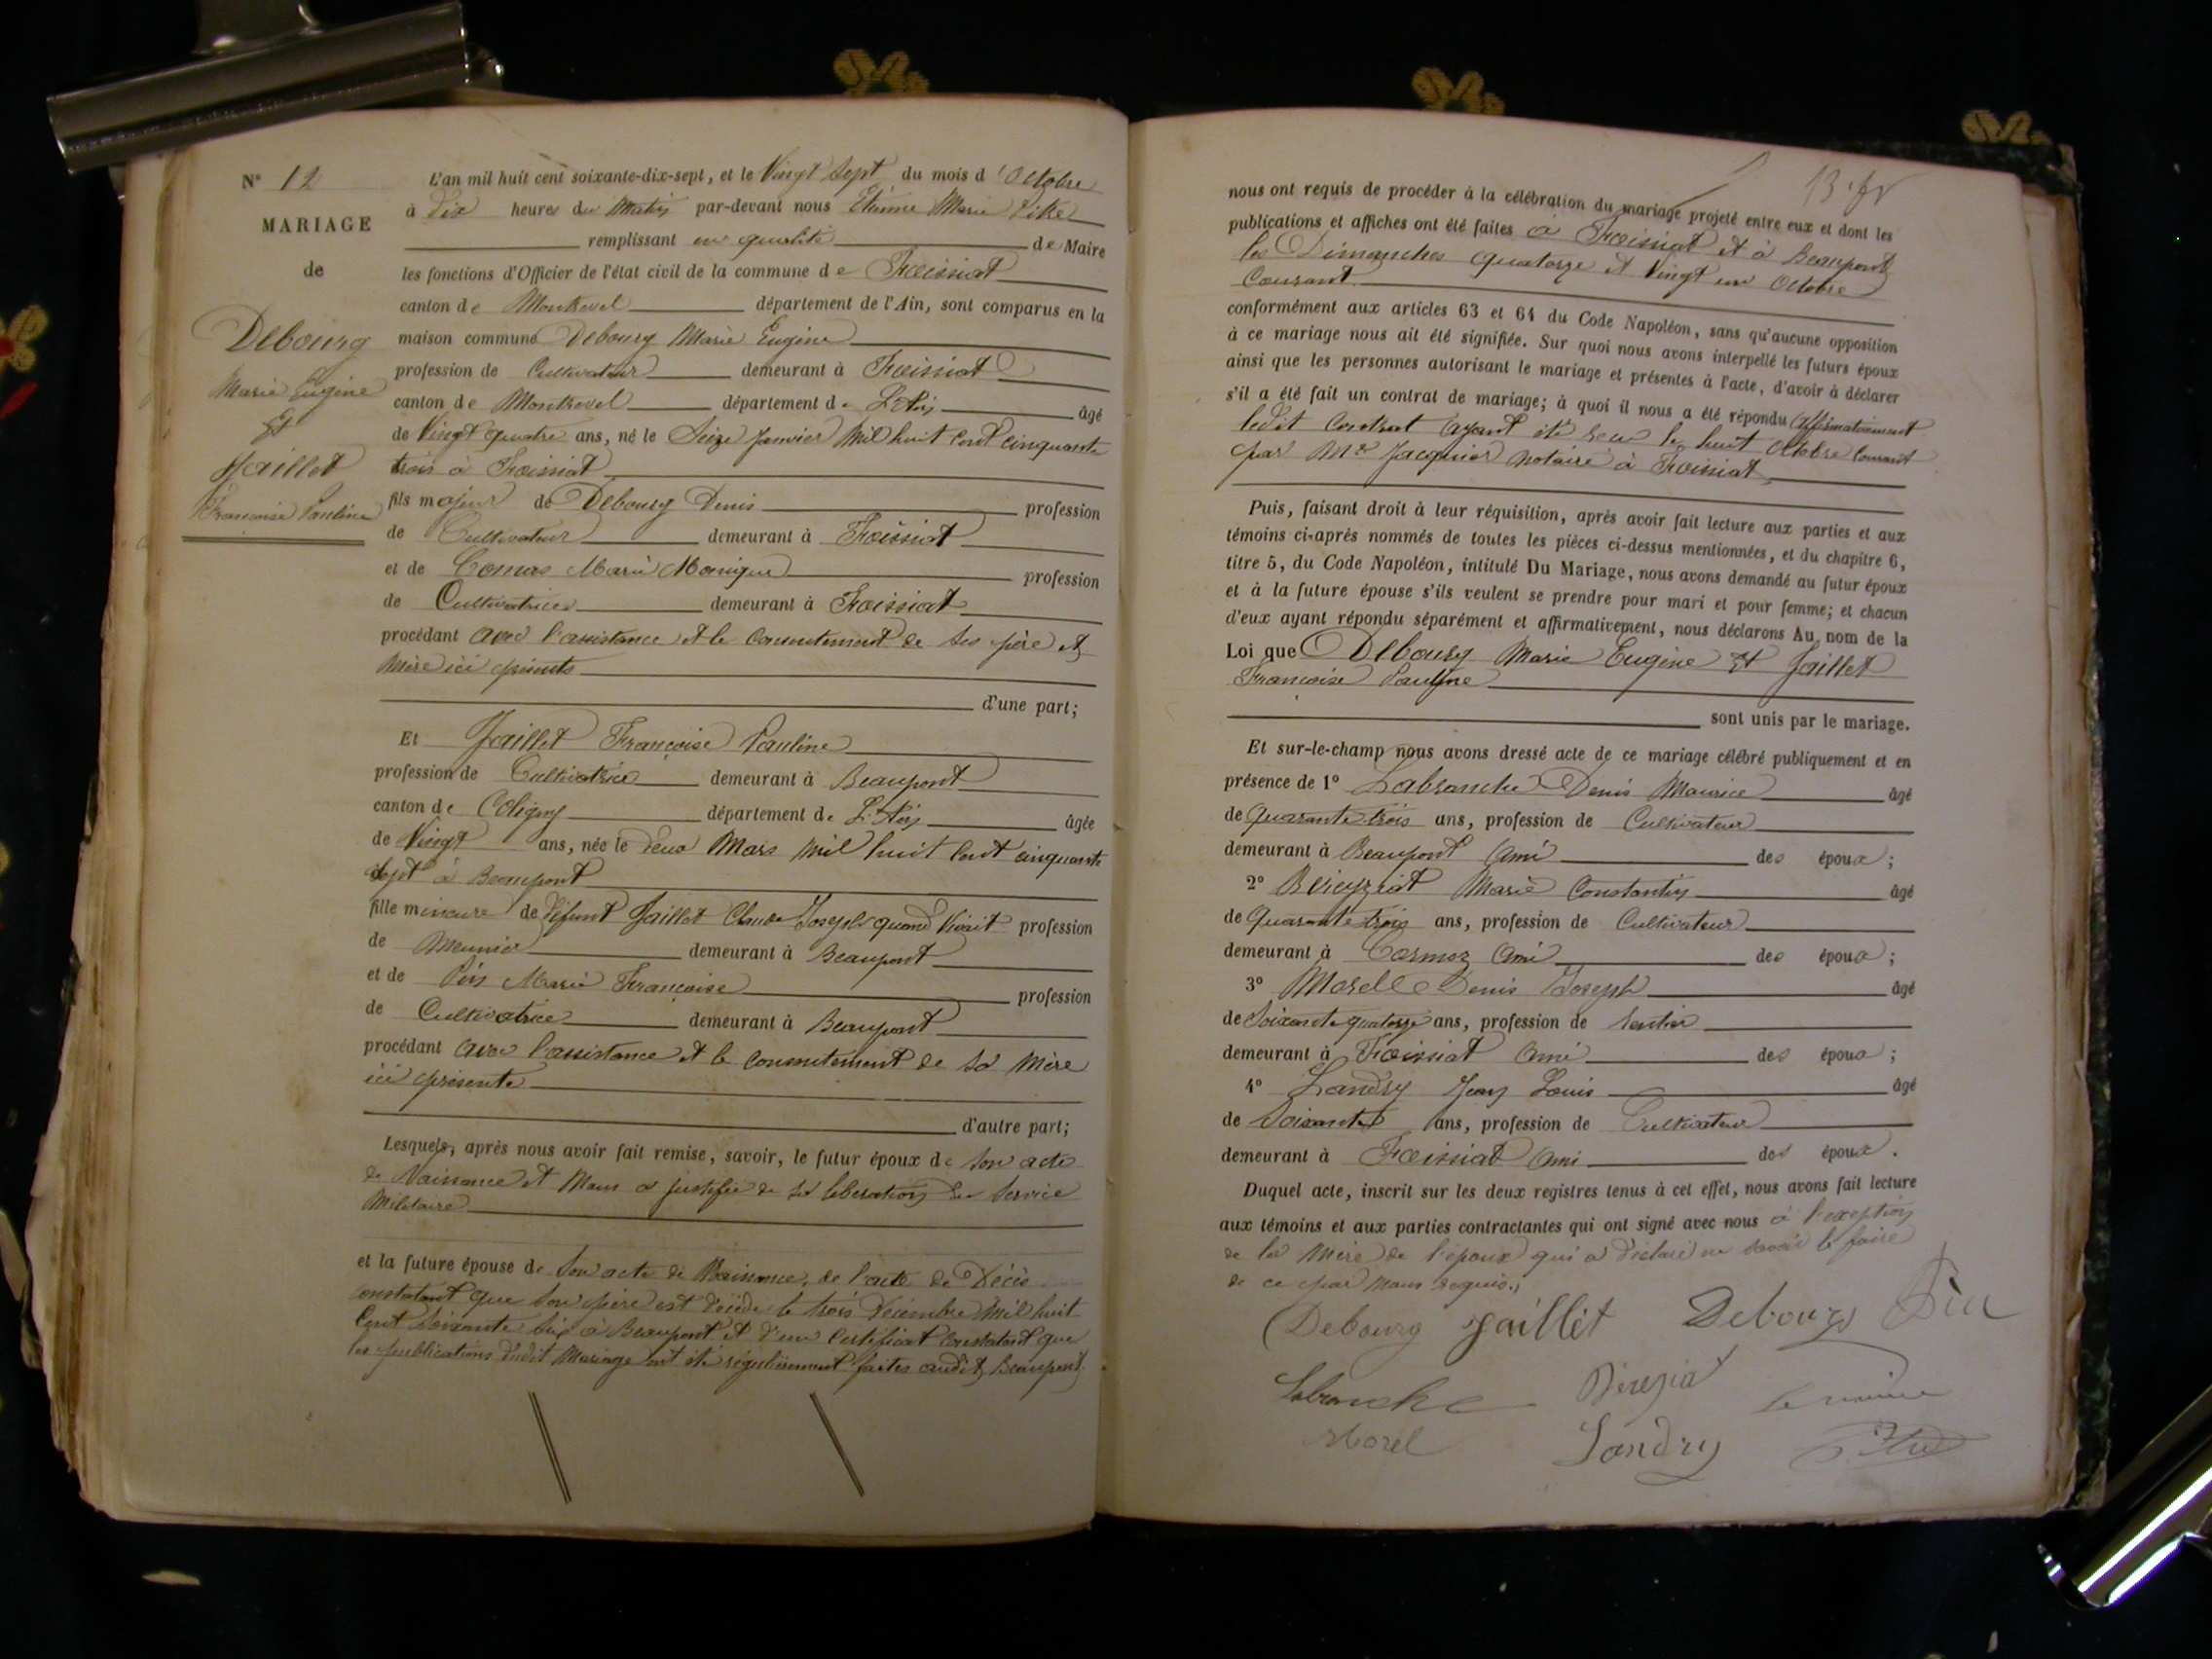 N° 12
MARIAGE
de
Debourg
Marie Eugène
Et
Jaillet
Françoise Pauline
L'an mil huit cent soixante-dix-sept, et le Vingt Sept du mois d'Octobre
à Dix heures du Matin par-devant nous Etienne Marie
remplissant en qualité de Maire
les fonctions d'Officier de l'état civil de la commune de Foissiat
canton de Montrevel département de l'Ain, sont comparus en la
maison commune Debourg Marie Eugène
profession de Cultivateur demeurant à Foissiat
canton de Montrevel département de L'Ain âgé
de Vingt quatre ans, né le Seize Janvier Mil huit Cent cinquante
trois à Foissiat
fils majeur de Debourg Denis profession
de Cultivateur demeurant à Foissiat
et de Comas Marie Monique profession
de Cultivatrice demeurant à Foissiat
procédant avec l'assistance et le Consentement de Ses père et
Mère ici présents
d'une part;
Et Jaillet Françoise Pauline
profession de Cultivatrice demeurant à Beaupont
canton de Coligny département de L'Ain âgée
de Vingt ans, née le deux Mars Mil huit Cent cinquante
Sept à Beaupont
fille mineure de défunt Jaillet Claude Joseph quand Vivait profession
de Meunier demeurant à Beaupont
et de Pin Marie Françoise profession
de Cultivatrice demeurant à Beaupont
procédant avec l'assistance et le Consentement de Sa Mère
ici présente
d'autre part;
Lesquels, après nous avoir fait remise, savoir, le futur époux de Son acte
de Naissance et Nous a justifié de Sa libération du Service
Militaire
et la future épouse de Son acte de Naissance, de l'acte de Décès
constatant que Son père est décédé le trois Décembre Mil huit
Cent Soixante Six à Beaupont et d'un Certificat Constatant que
les publications dudit Mariage ont été régulièrement faites audit Beaupont
13
nous ont requis de procéder à la célébration du mariage projeté entre eux et dont les
publications et affiches ont été faites à Foissiat et à Beaupont
les Dimanches Quatorze et Vingt un Octobre
Courant
conformément aux articles 63 et 64 du Code Napoléon, sans qu'aucune opposition
à ce mariage nous ait été signifiée. Sur quoi nous avons interpellé les futurs époux
ainsi que les personnes autorisant le mariage et présentes à l'acte, d'avoir à déclarer
s'il a été fait un contrat de mariage; à quoi il nous a été répondu Affirmativement
ledit Contrat ayant été reçu le huit Octobre Courant
par Me Jacquier Notaire à Foissiat
Puis, faisant droit à leur réquisition, après avoir fait lecture aux parties et aux
témoins ci-après nommés de toutes les pièces ci-dessus mentionnées, et du chapitre 6,
titre 5, du Code Napoléon, intitulé Du Mariage, nous avons demandé au futur époux
et à la future épouse s'ils veulent se prendre pour mari et pour femme; et chacun
d'eux ayant répondu séparément et affirmativement, nous déclarons Au nom de la
Loi que Debourg Marie Eugène Et Jaillet
Françoise Pauline
sont unis par le mariage.
Et sur-le-champ nous avons dressé acte de ce mariage célébré publiquement et en
présence de 1° Labranche Denis Maurice âgé
de Quarante trois ans, profession de Cultivateur
demeurant à Beaupont Ami des époux;
2° Béreyziat Marie Constantin âgé
de Quarante trois ans, profession de Cultivateur
demeurant à Cormoz Ami des époux;
3° Morel Denis Joseph âgé
de Soixante quatorze ans, profession de Rentier
demeurant à Foissiat Ami des époux;
4° Landry Jean Louis âgé
de Soixante ans, profession de Cultivateur
demeurant à Foissiat Ami des époux.
Duquel acte, inscrit sur les deux registres tenus à cet effet, nous avons fait lecture
aux témoins et aux parties contractantes qui ont signé avec nous à l'exception
de la Mère de l'époux qui a déclaré ne Savoir le faire
de ce par Nous requis.
Debourg Jaillet Debourg Pin
Labranche Béreziat Le maire
Morel Landry